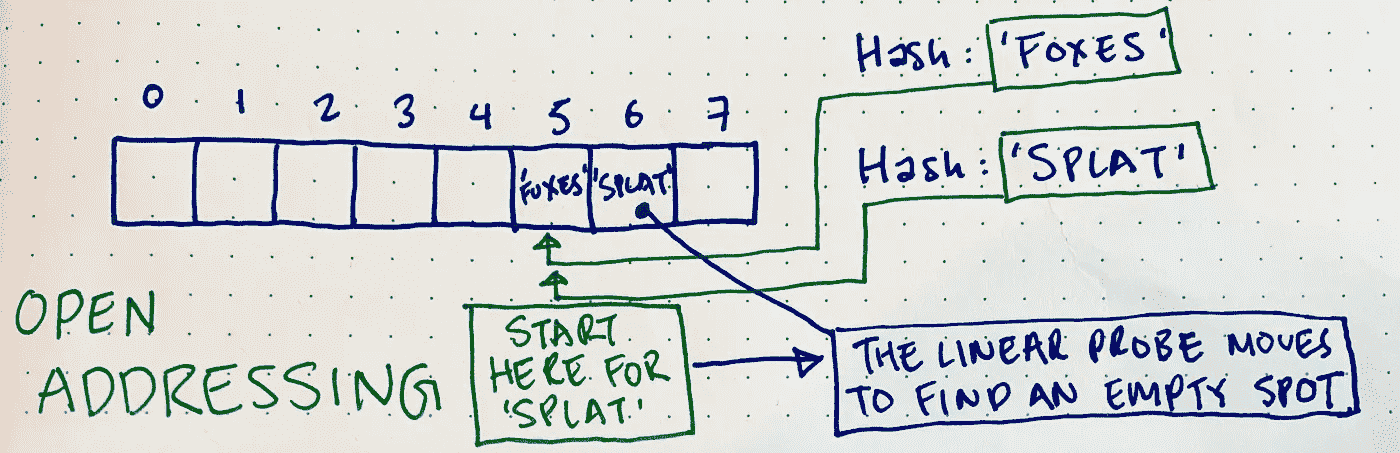 Hash: 'FOXES'
0 1 2 3 4 5 6 7
Hash: 'SPLAT'
'FOXES' 'SPLAT'
OPEN
ADDRESSING
START
HERE FOR
'SPLAT'
THE LINEAR PROBE MOVES
TO FIND AN EMPTY SPOT